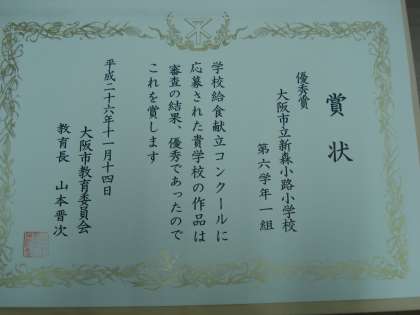 賞状
優秀賞
大阪市立新森小路小学校
第六学年一組
学校給食献立コンクールに
応募された貴学校の作品は
審査の結果、優秀であったので
これを賞します
平成二十六年十一月十四日
大阪市教育委員会
教育長 山本晋次